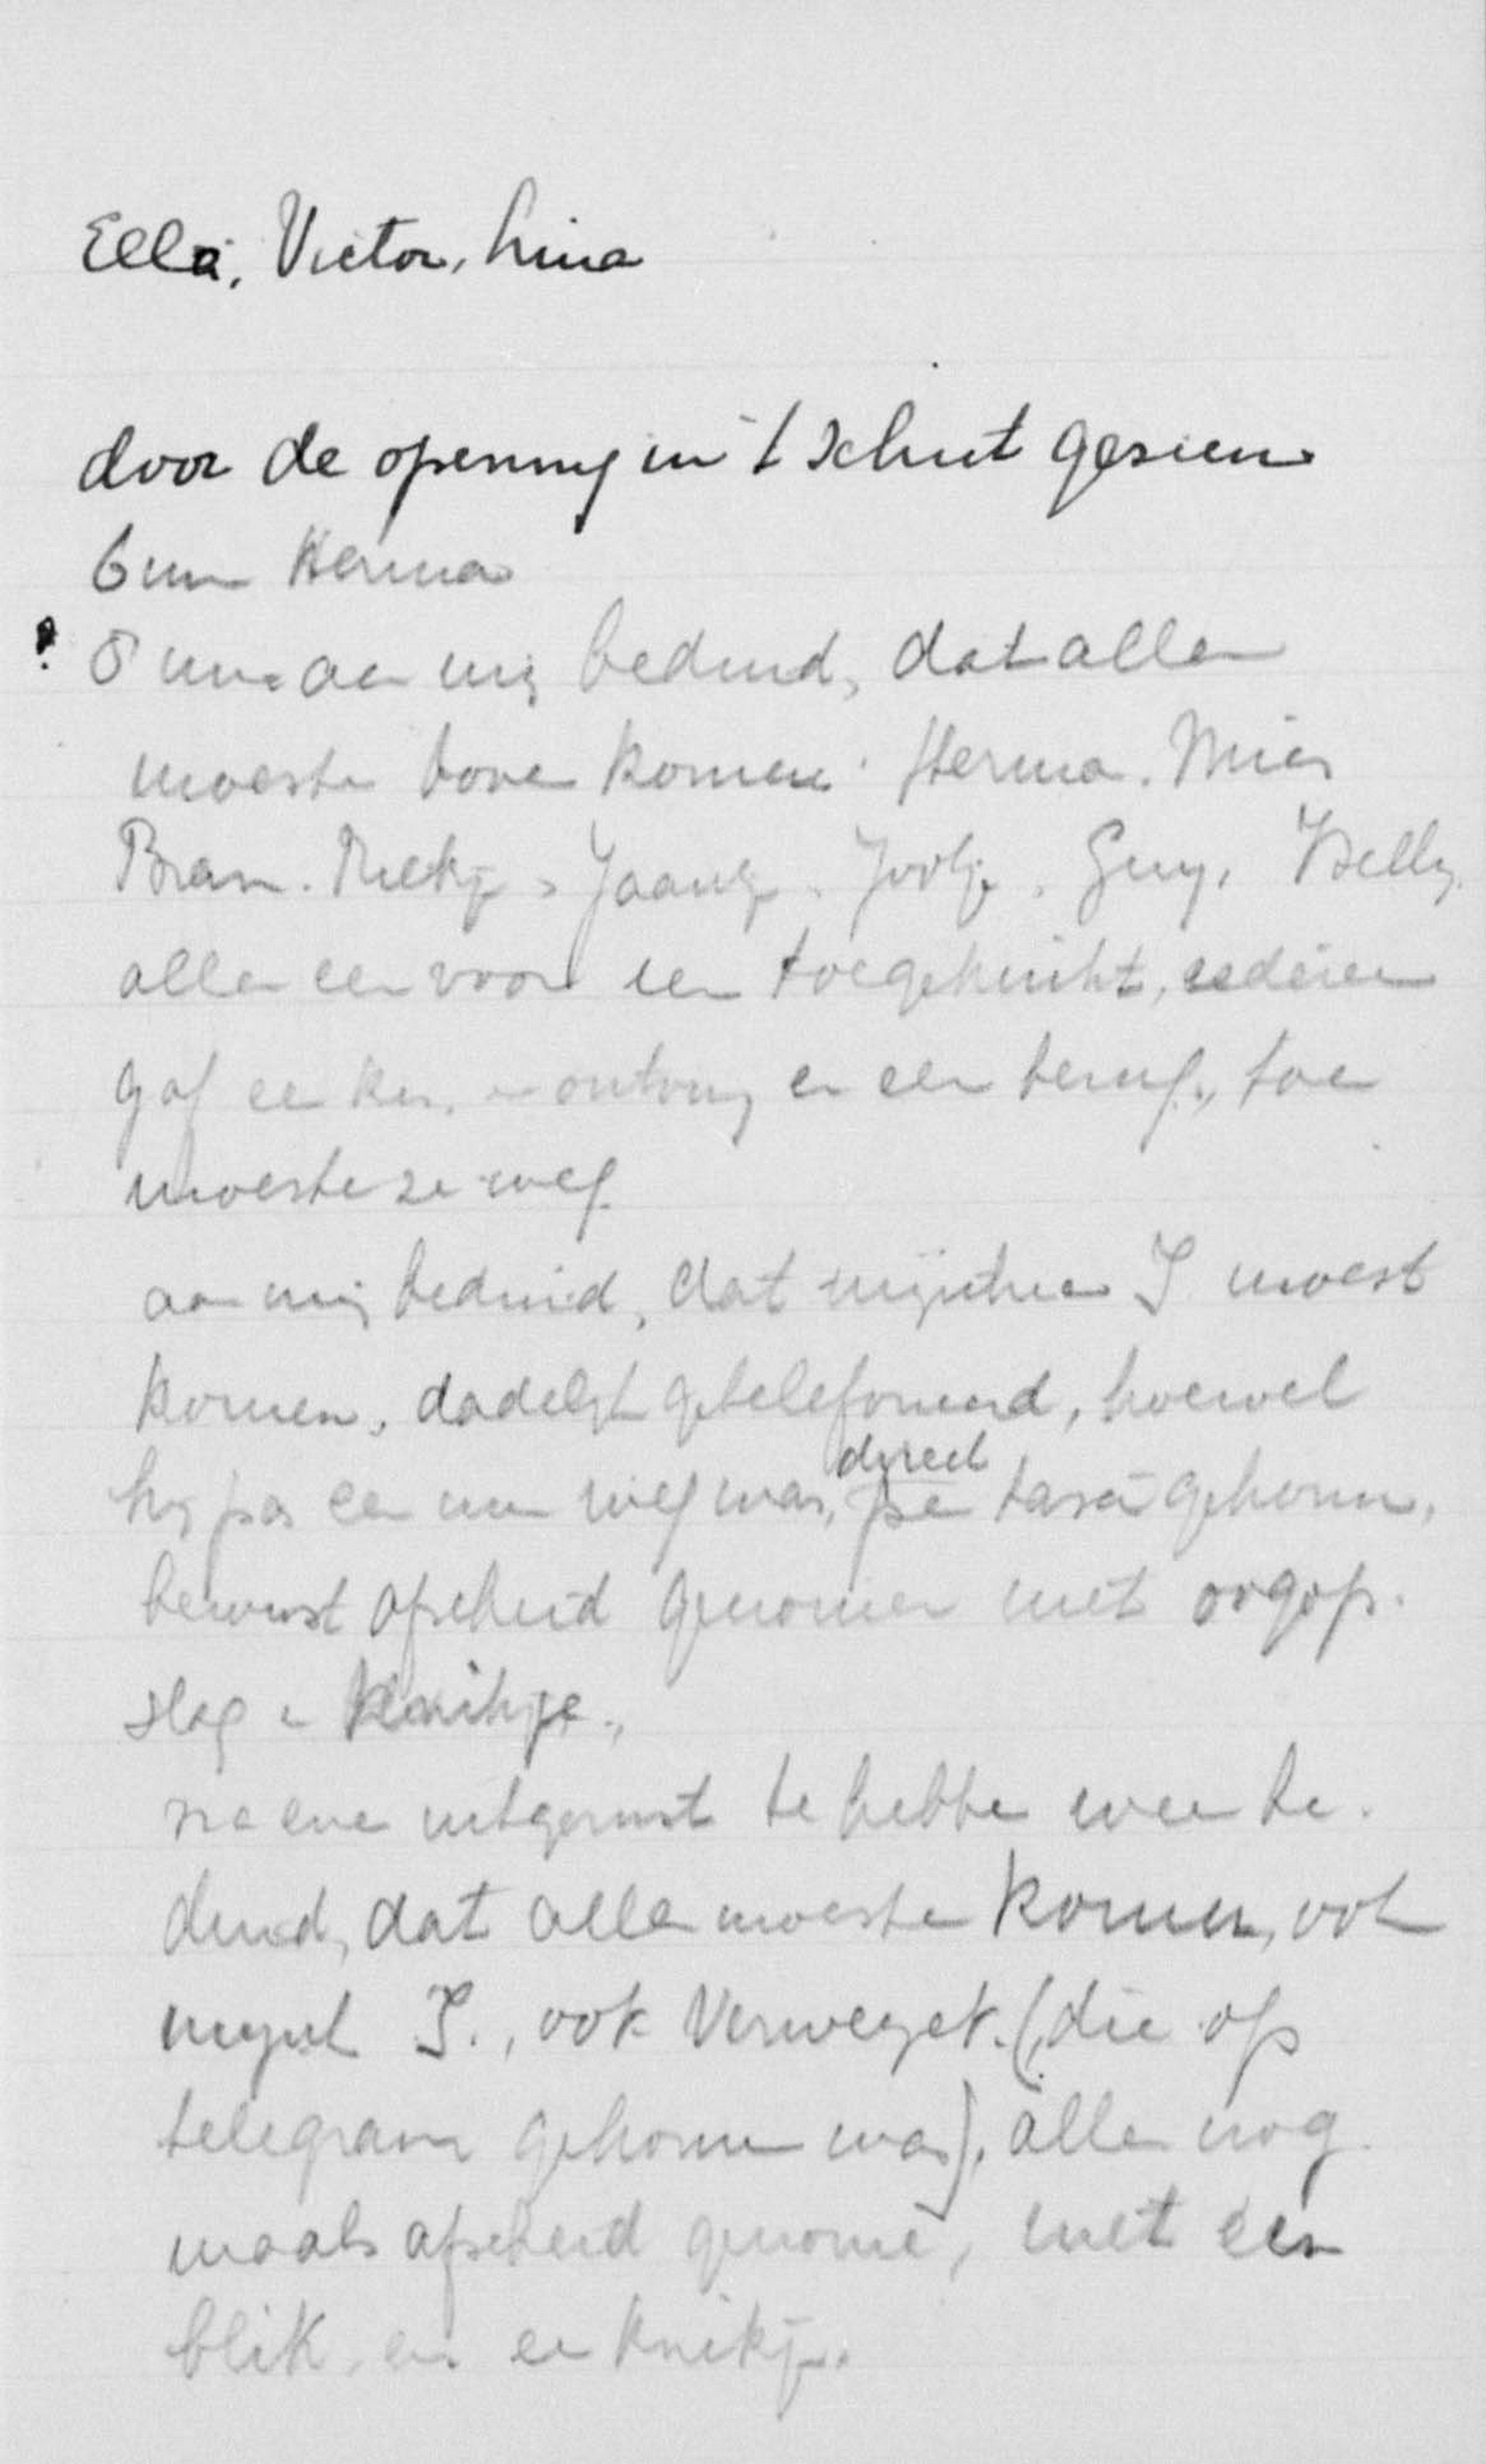 Ella, Victor, Lina
door de opening in 't schut gezien
6 uur Herma
? 5 uur aan mij beduid, dat allen
moesten boven komen. Herma. Mies
Bram. Miekje, Jaantje. Joopje. Guy. Kelly.
allen een voor een toegeknikt, iedereen
gaf een kus, en ontving er een terug, toen
moesten ze weg.
aan mij beduid, dat mijnheer I moest
komen, dadelijk getelefoneerd, hoewel
hij pas een uur weg was, direct per taxi gekomen,
bewust afscheid genomen met oogop-
slag en knikje.,
na even uitgerust te hebben weer be-
duid, dat allen moesten komen, ook
mijnh I., ook Verweyek. (die op
telegram gekomen was), allen nog
maals afscheid genomen, met een
blik, en een knikje.